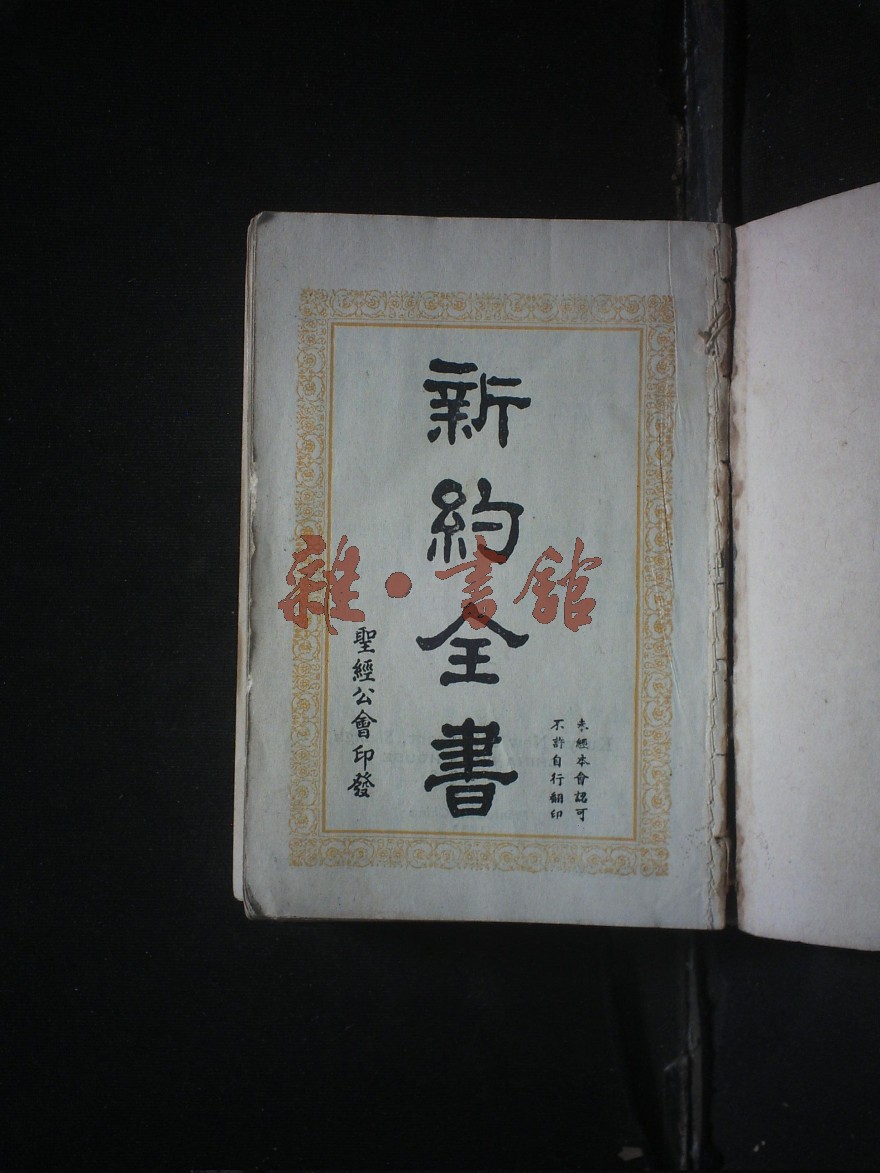 未經本會認可
不許自行翻印
新約全書
聖經公會印發
雜·書館